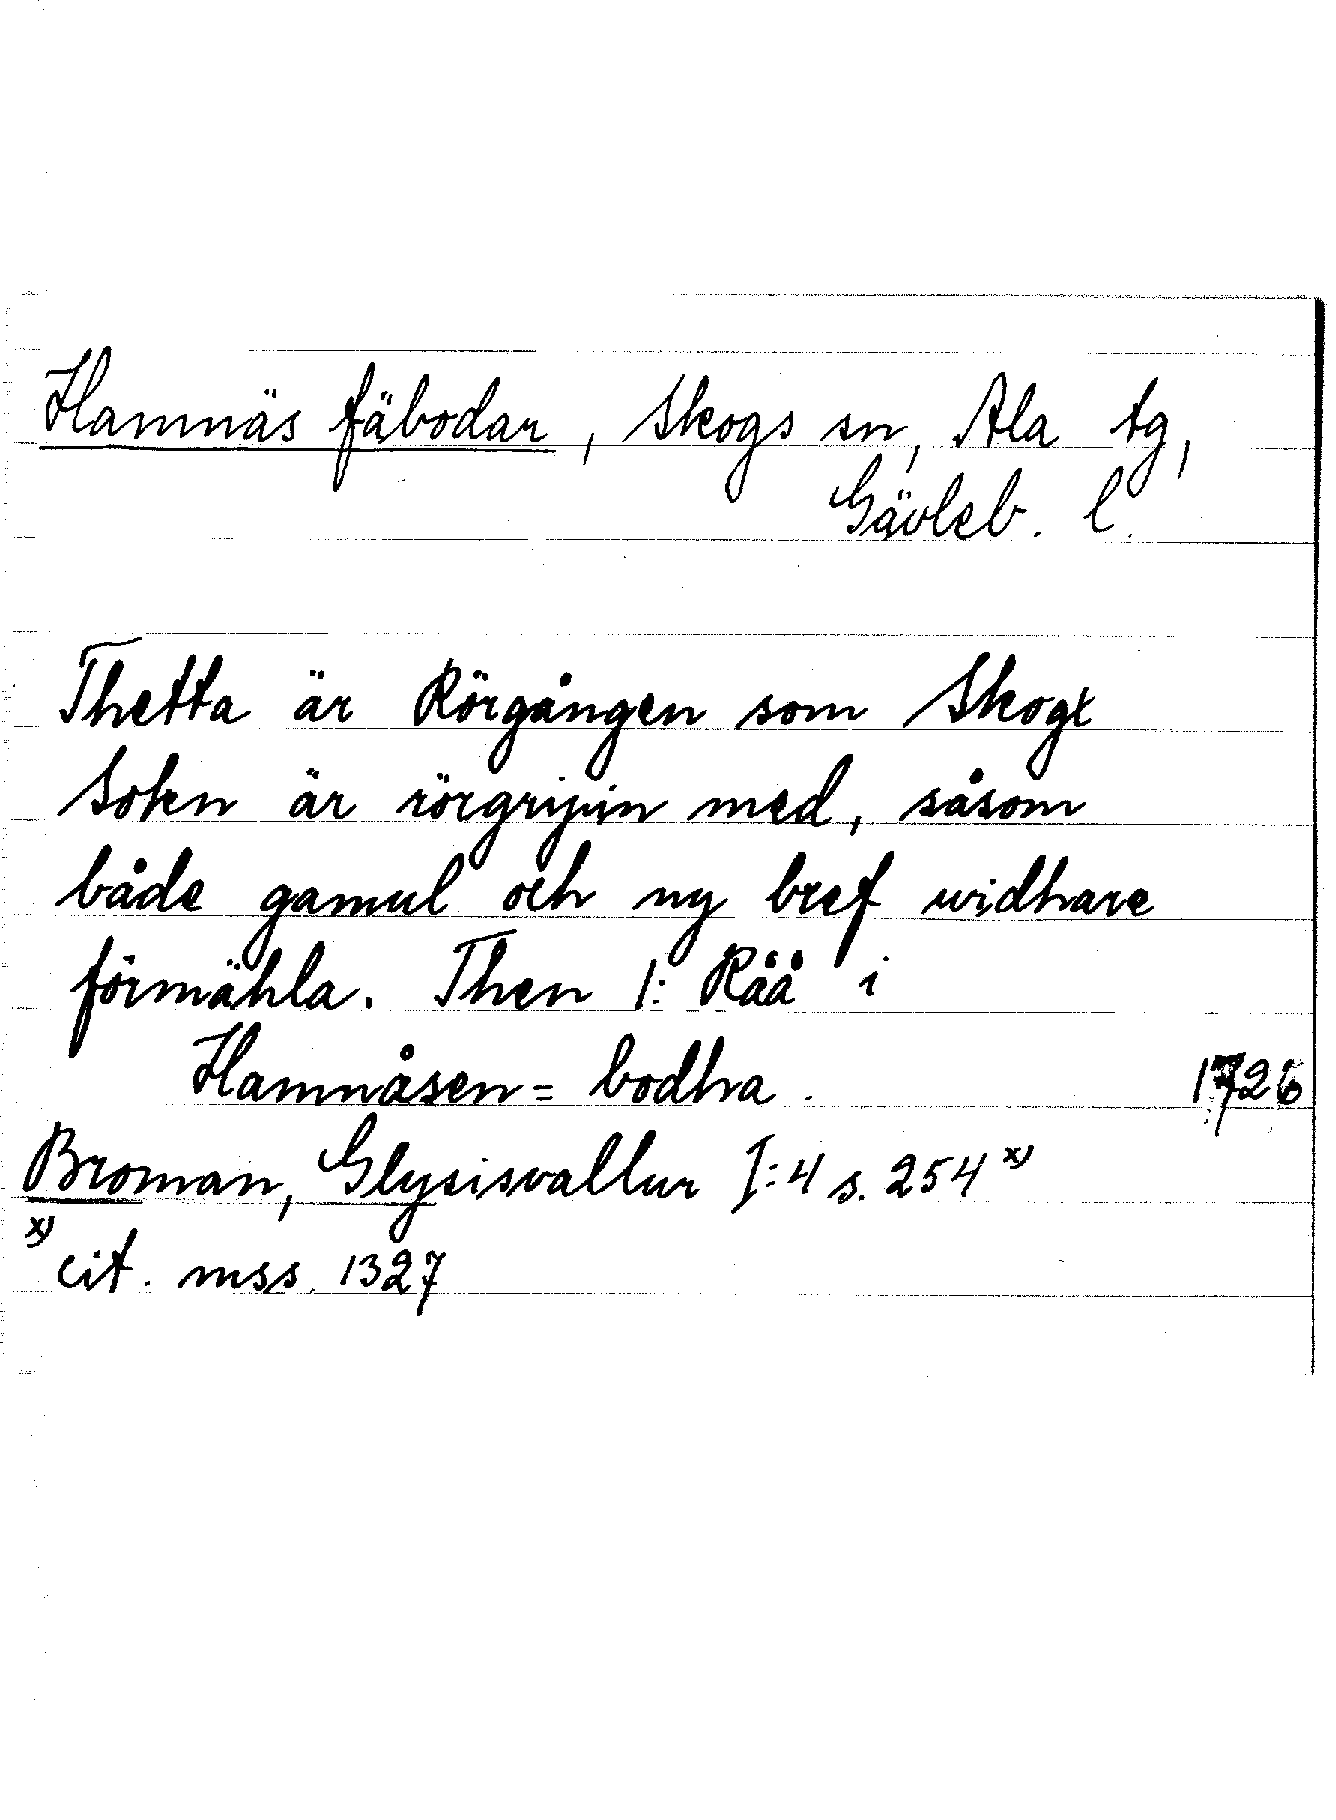 Hamnäs fäbodar, Skogs sn, Ala tg,
Gävleb. l.
Thetta är Rörgången som Skogx
Sokn är rörgripin med, såsom
både gamul och ny bref widhare
förmähla. Then 1: Råå i
Hamnåsen= bodha. 1726
Broman, Glysisvallur I:4 s. 254 x)
x) cit. mss. 1327